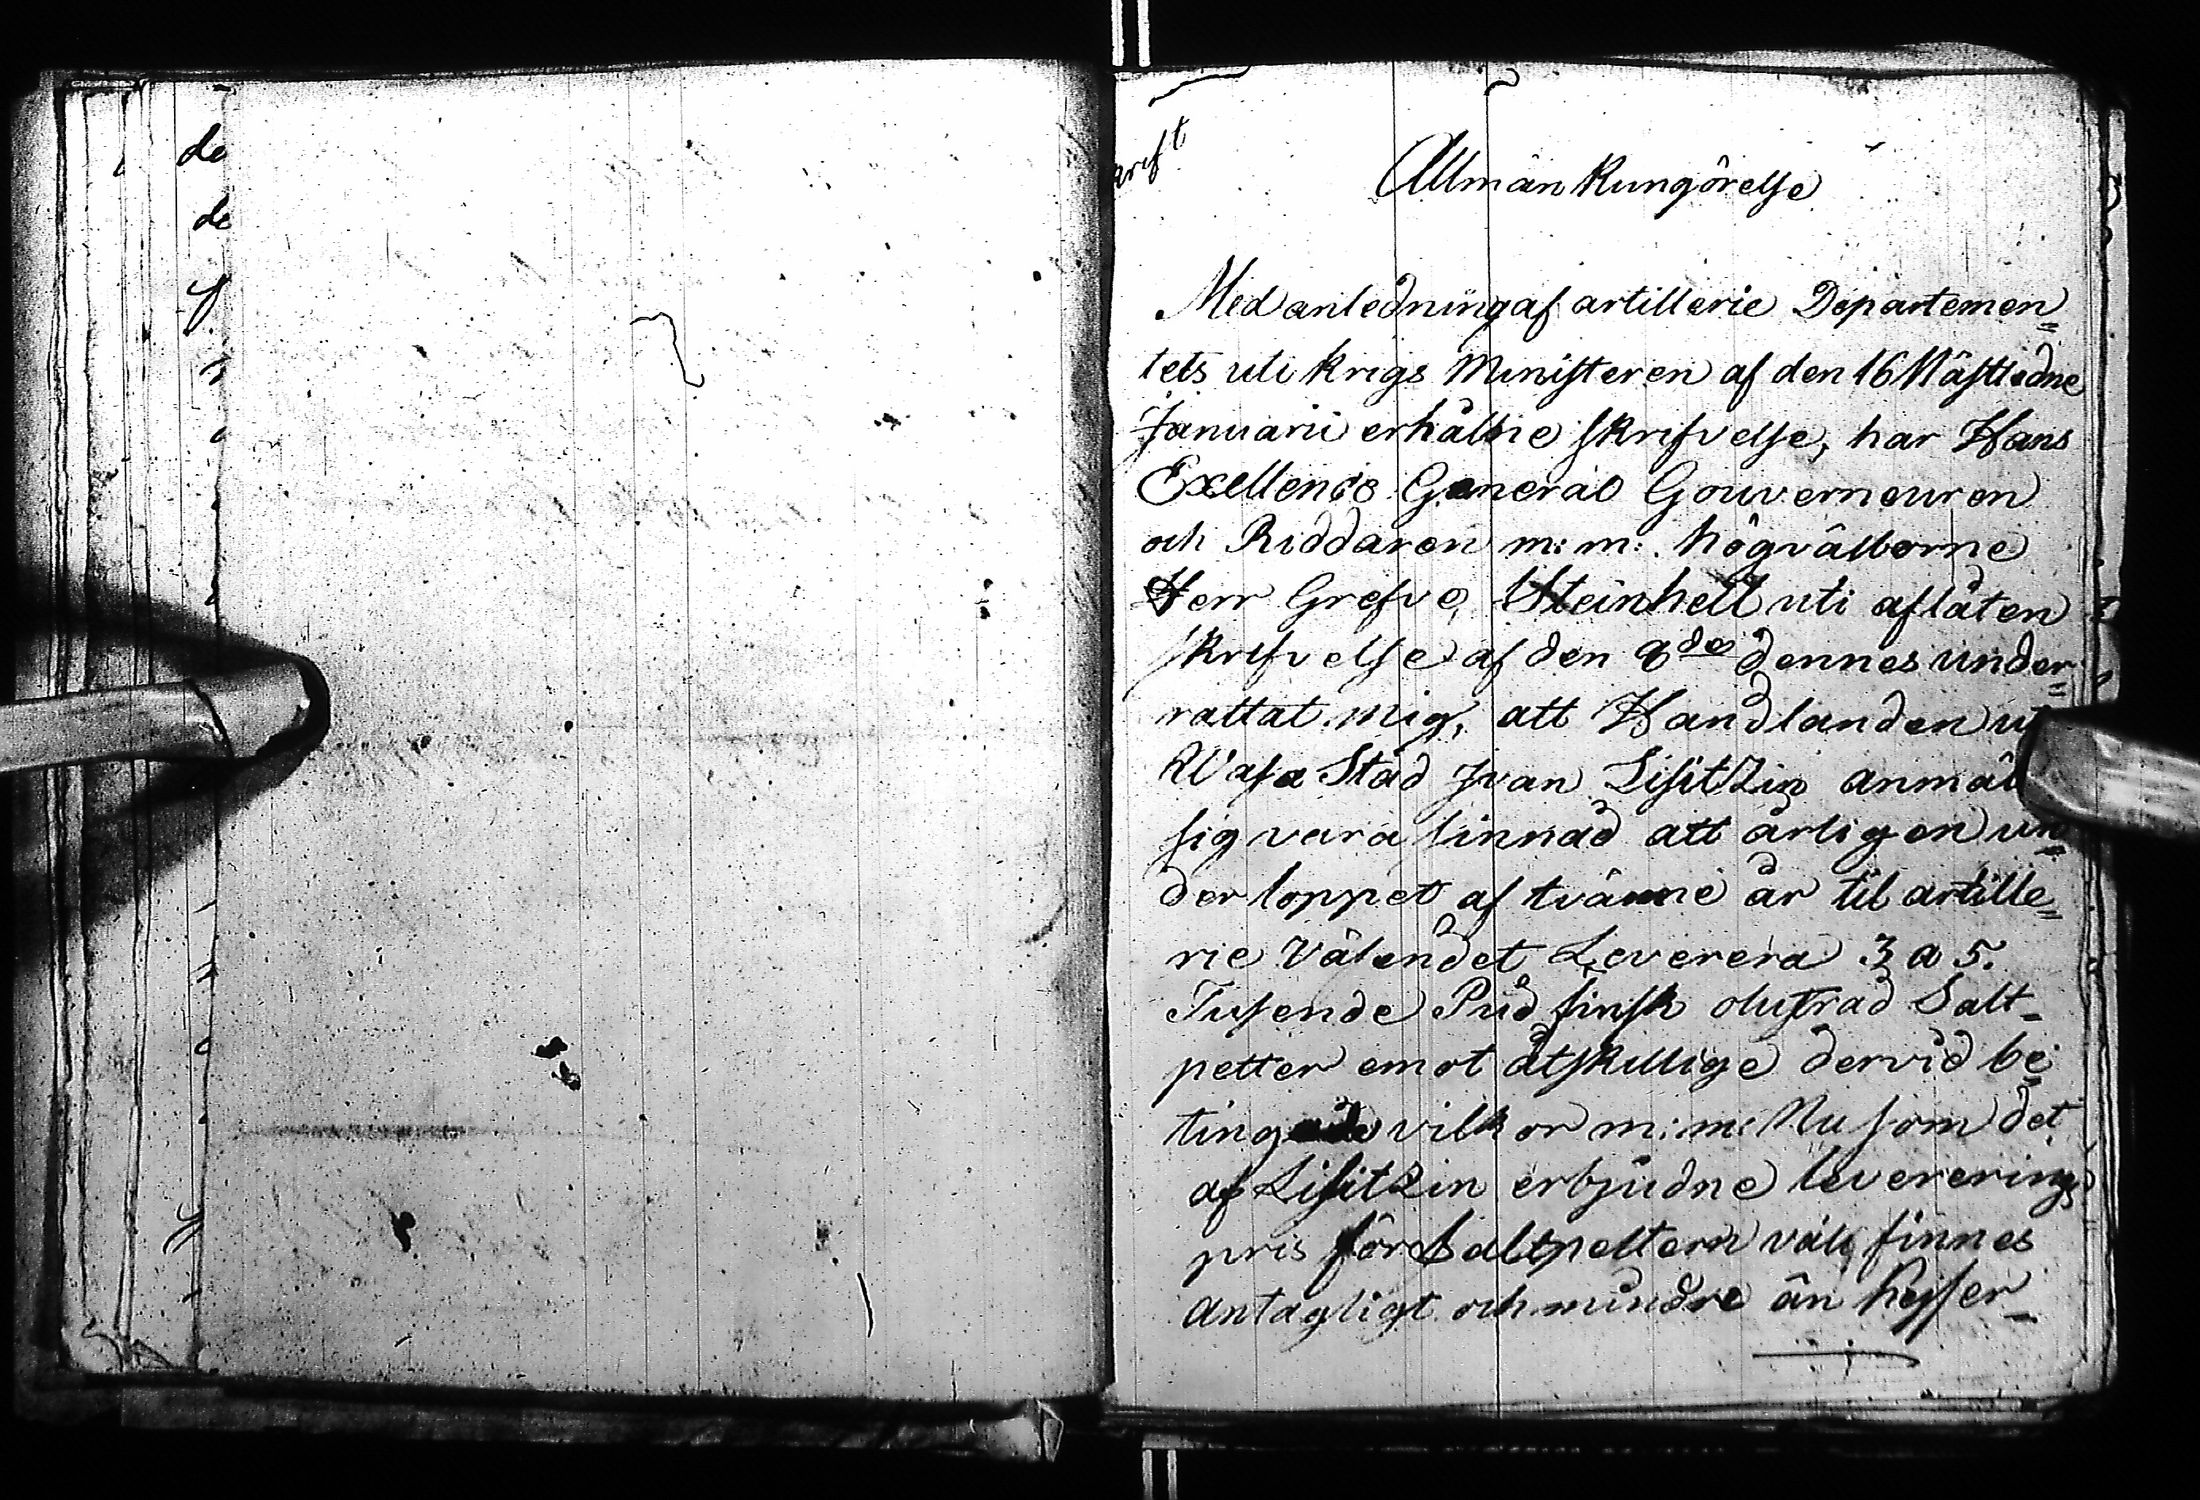 de
de
krift
Allmän Kungörelse
Med anledning af artillerie Departemen=
tets uti krigs Ministeren af den 16 Nästledne
Januarii erhållne skrifvelse, har Hans
Excellence General Gouverneuren
och Riddaren m: m: högvälborne
Herr Grefve Steinhell uti aflåten
skrifvelse af den 8de dennes under=
rättat mig, att Handlanden
Wasa Stad Ivan Lisitzin
sig vara sinnad att årligen un=
der loppet af tvänne år til artille=
rie väsendet Leverera 3 a 5.
Tusende Pud finsk olutrad Salt-
petter emot åtskillige dervid be
tingade vilkor m: m: Nu som det
af Lisitzin erbjudne leverering
pris för Saltpettern väl finnes
antagligt och mindre än hysser-